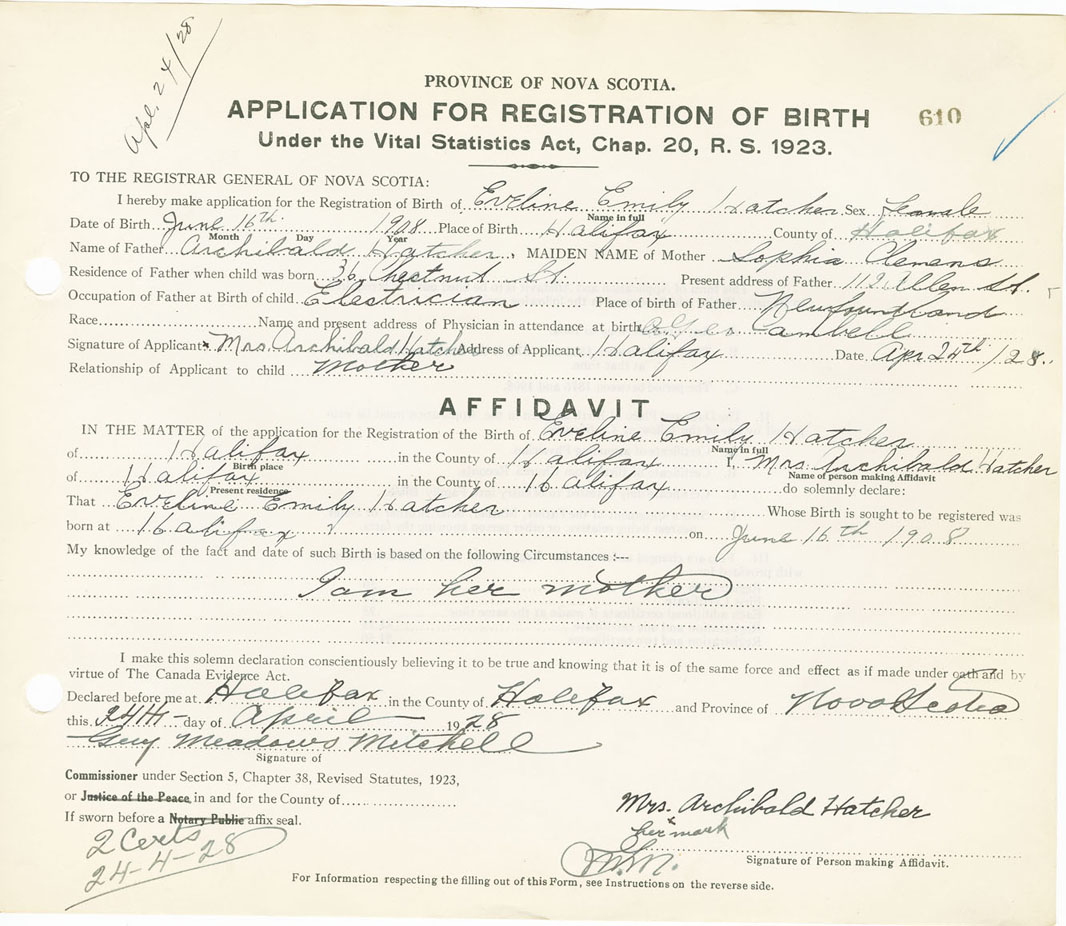 Apl. 24/28
PROVINCE OF NOVA SCOTIA.
APPLICATION FOR REGISTRATION OF BIRTH
610
Under the Vital Statistics Act, Chap. 20, R. S. 1923.
TO THE REGISTRAR GENERAL OF NOVA SCOTIA:
I hereby make application for the Registration of Birth of Eveline Emily Hatcher Sex Female
Name in full
Date of Birth June 16th 1908 Place of Birth Halifax County of Halifax
Month Day Year
Name of Father Archibald Hatcher, MAIDEN NAME of Mother Sophia Clemens
Residence of Father when child was born 36 Chestnut St. Present address of Father 112 Allen St.
Occupation of Father at Birth of child Electrician Place of birth of Father Newfoundland
Race Name and present address of Physician in attendance at birth Cambell
Signature of Applicant Mrs. Archibald Hatcher Address of Applicant Halifax Date Apr 24th/28.
Relationship of Applicant to child Mother
AFFIDAVIT
IN THE MATTER of the application for the Registration of the Birth of Eveline Emily Hatcher
Name in full
of Halifax in the County of Halifax I, Mrs Archibald Hatcher
Birth place Name of person making Affidavit
of Halifax in the County of Halifax do solemnly declare:
Present residence
That Eveline Emily Hatcher Whose Birth is sought to be registered was
born at Halifax on June 16th 1908
My knowledge of the fact and date of such Birth is based on the following Circumstances :---
I am her mother
I make this solemn declaration conscientiously believing it to be true and knowing that it is of the same force and effect as if made under oath and by
virtue of The Canada Evidence Act.
Declared before me at Halifax in the County of Halifax and Province of Nova Scotia
this 24th day of April 1928
Guy Meadows Mitchell
Signature of
Commissioner under Section 5, Chapter 38, Revised Statutes, 1923,
or Justice of the Peace in and for the County of
If sworn before a Notary Public affix seal.
2 Certs
24-4-28
Mrs. Archibald Hatcher
x
her mark
Signature of Person making Affidavit.
For Information respecting the filling out of this Form, see Instructions on the reverse side.